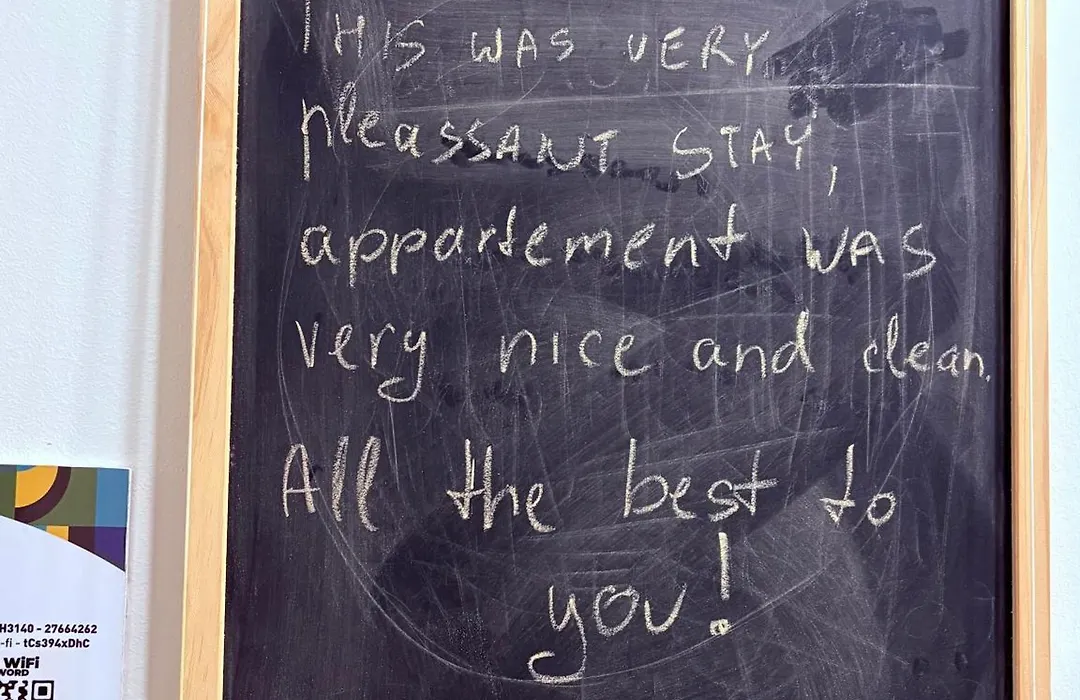 THIS WAS VERY
pleassANT STAY,
appartement WAS
very nice and clean.
All the best to
you!
H3140 - 27664262
-fi - tCs394xDhC
WiFi
WORD